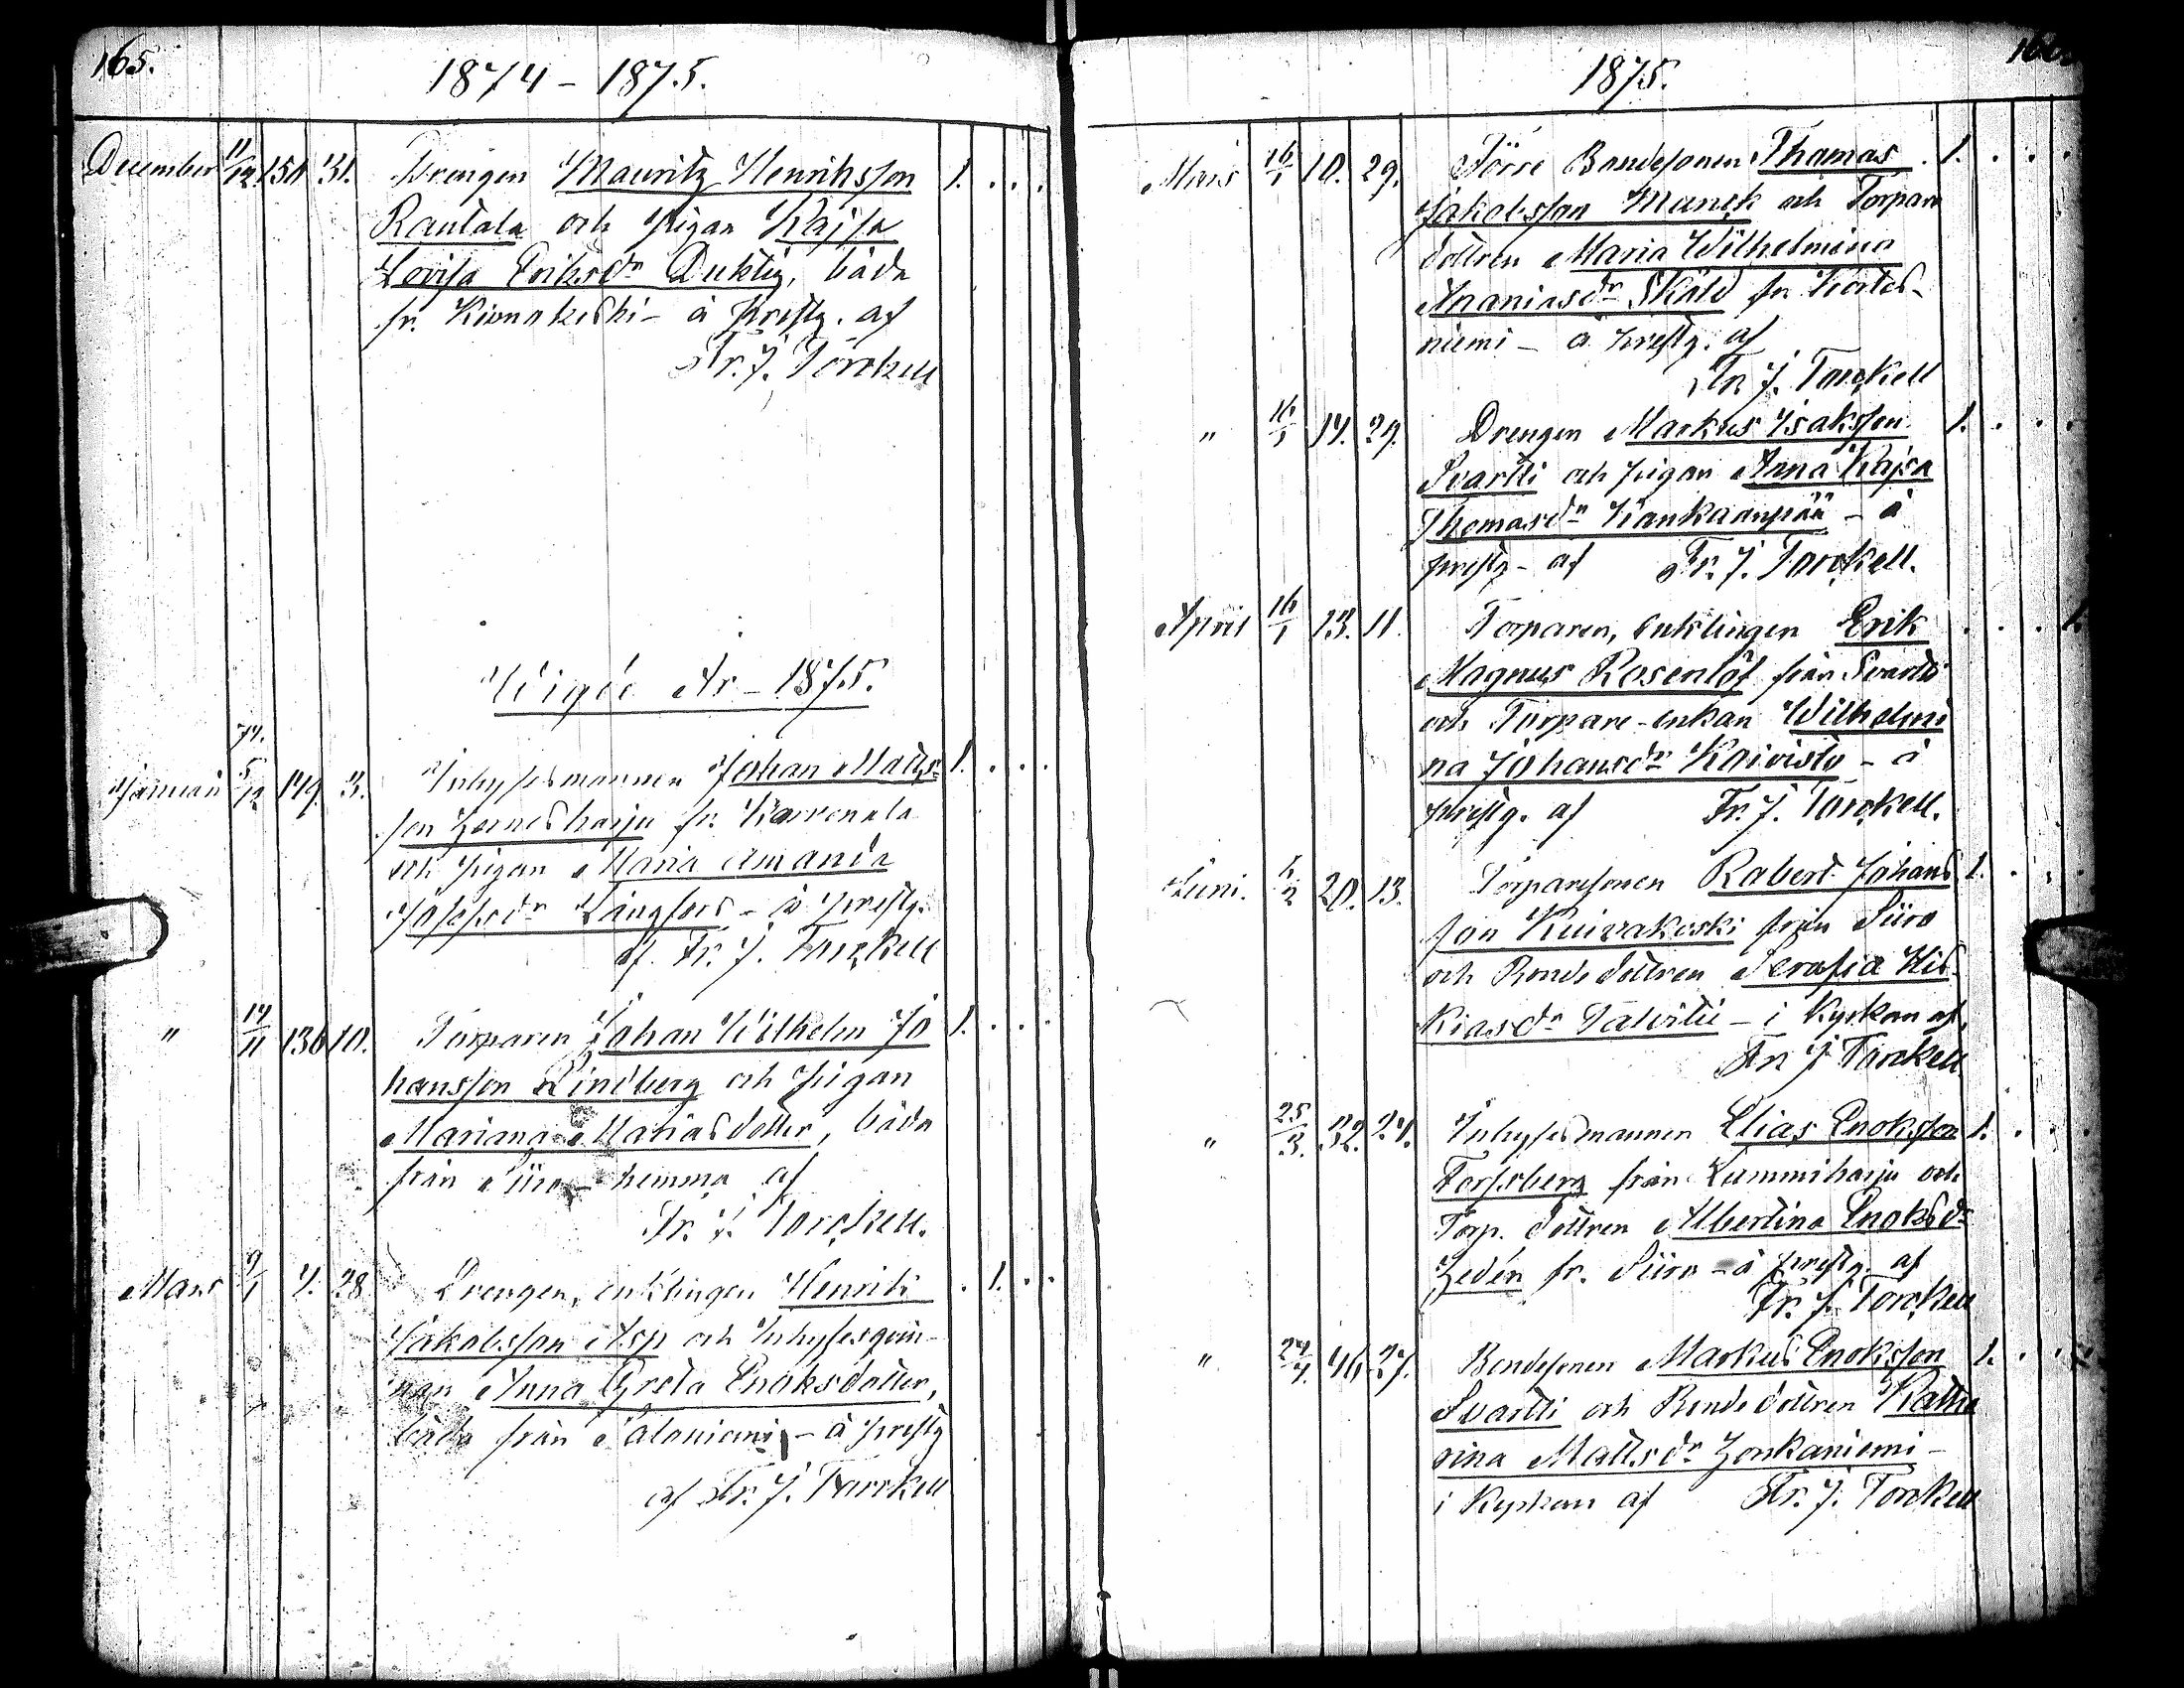 165.
1874 - 1875.
December 11/12 150 31. Drengen Mauritz Henriksson 1. . . .
Rautala och pigan Kajsa
Lovisa Eriksdr Duktig, båda
fr. Kivnakoski - å prestg. af
Fr. J. Torckell
Wigde År - 1875.
74.
Januari 5/12 149. 3. Inhysesmannen Johan Matts- 1. . . .
son Hernesharju fr.
och pigan Maria Amanda
Josefsdr Långfors - å prestg.
af Fr. J. Torckell
" 14/11 136 10. Torparen Johan Wilhelm Jo 1. . . .
hansson Lindberg och pigan
Mariana Matiasdotter, båda
från Siiro - hemma af
Fr. J. Torckell.
Mars 9/1 7. 28 Drengen, enklingen Henrik . 1. . .
Jakobsson Asp och Inhysesqvin-
nan Anna Greta Enoksdotter,
båda från Saloniemi - å prestg
af Fr. J. Torckell
1875.
Mars 16/1 10. 29. Förre Bondesonen Thomas 1. . . .
Jakobsson Munck och Torpare
dottren Maria Wilhelmina
Ananiasdr Sköld fr.
niemi - å prestg. af
Fr. J. Torckell
" 16/1 14. 29. Drengen Markus Isaksson 1. . . .
Svartti och pigan Anna Kajsa
Thomasdr Kankaanpää - å
prestg - af Fr. J. Torckell.
April 16/1 13. 11. Torparen, enklingen Erik . . . 1.
Magnus Rosenlöf från Svartti
och Torpare-enkan Wilhelmi
na Johansdr Koivisto - å
prestg. af Fr. J. Torckell.
Juni. 6/2 20. 13. Torparesonen Robert Johans 1. . . .
son Kuivakoski från Siiro
och Bondedottren Serafia His
kiasdr Talvitie - i Kyrkan af
Fr. J. Torckell
" 25/3. 32. 24. Inhysesmannen Elias Enoksson 1. . . .
Forssberg från Lummiharju och
Torp. dottren Albertina Enoksdr
Zedén fr. Siiro - å prestg. af
Fr. J. Torckell
" 24/4. 46 27. Bondesonen Markus Enoksson 1. . . .
Svartti och Bondedottren Katha
rina Mattsdr Honkaniemi -
i Kyrkan af Fr. J. Torckell